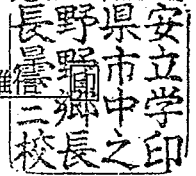 長野県安
曇野市立
三郷中学
校長之印